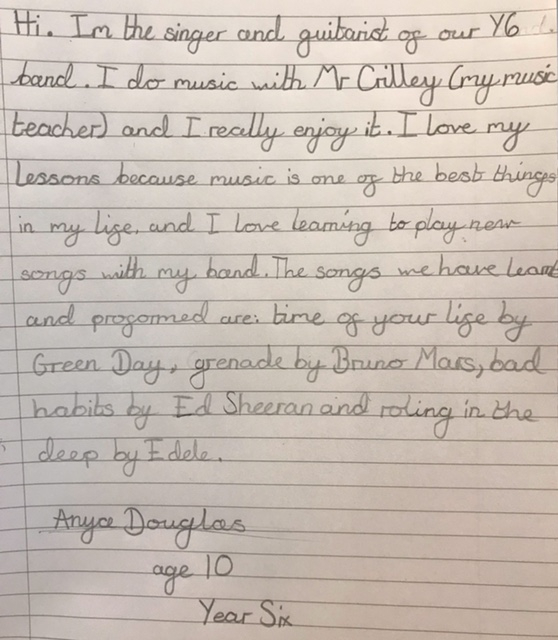 Hi. Im the singer and guitarist of our Y6
band. I do music with Mr Crilley (my music
teacher) and I really enjoy it. I love my
Lessons because music is one of the best things
in my life, and I love learning to play new
songs with my band. The songs we have learnt
and proformed are: time of your life by
Green Day, grenade by Bruno Mars, bad
habits by Ed Sheeran and roling in the
deep by Edele.
Anyce Douglas
age 10
Year Six